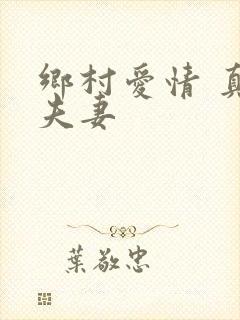 鄉村愛情 真
夫妻
葉敬忠